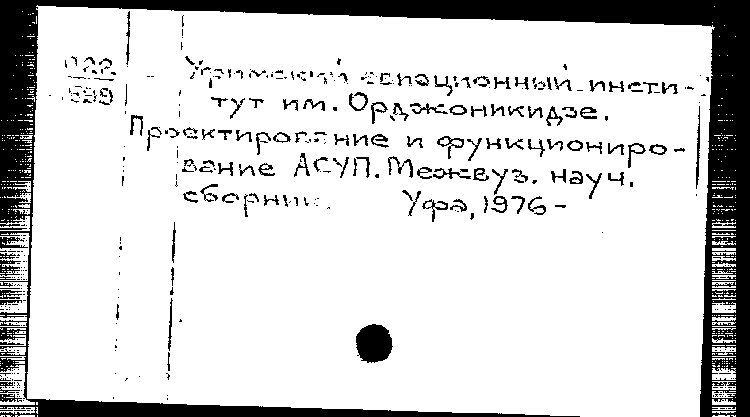 Уфимский авиационный инсти-
тут им. Орджоникидзе.
Проектирование и функциониро-
вание АСУП. Межвуз. науч.
сборник. Уфа, 1976-